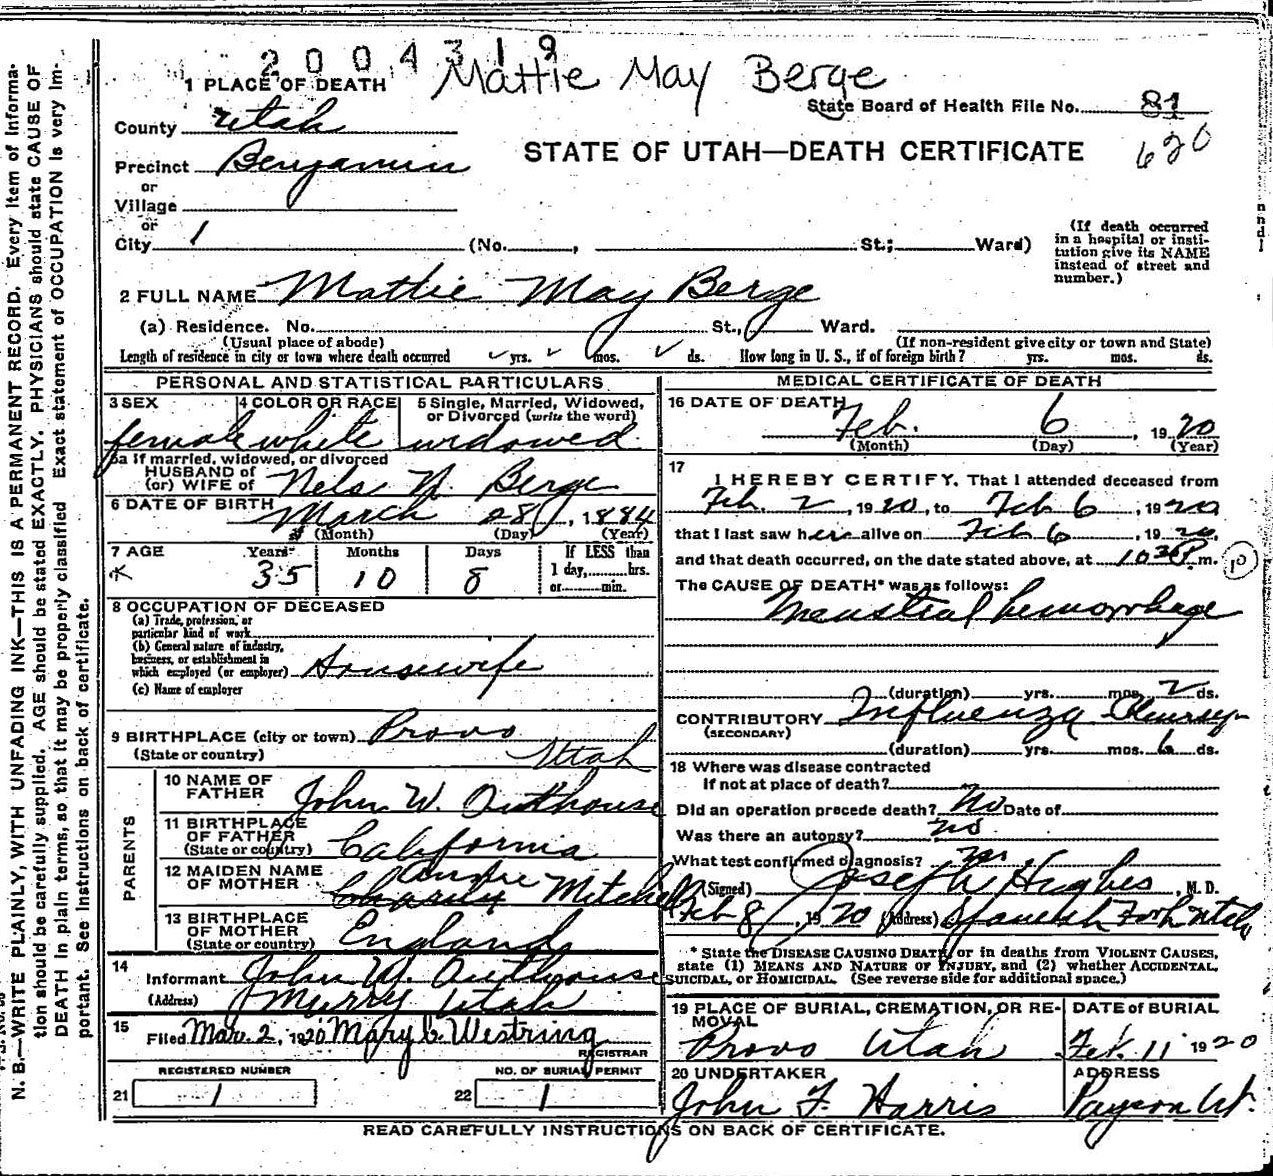 2004312
Mattie May Berge
1 PLACE OF DEATH
State Board of Health File No. 81
620
County Utah
STATE OF UTAH—DEATH CERTIFICATE
Precinct Benjamin
or
Village
or
City 1 (No. , St.; Ward)
(If death occurred in a hospital or insti-
tution give its NAME instead of street and number.)
2 FULL NAME Mattie May Berge
(a) Residence. No. St., Ward.
(Usual place of abode) (If non-resident give city or town and State)
Length of residence in city or town where death occurred yrs. mos. ds. How long in U. S., if of foreign birth? yrs. mos. ds.
PERSONAL AND STATISTICAL PARTICULARS
3 SEX 4 COLOR OR RACE 5 Single, Married, Widowed,
or Divorced (write the word)
female white widowed
5a If married, widowed, or divorced
HUSBAND of
(or) WIFE of Nels N. Berge
6 DATE OF BIRTH March 28, 1884
(Month) (Day) (Year)
7 AGE Years Months Days If LESS than
35 10 8 1 day, hrs.
or min.
8 OCCUPATION OF DECEASED
(a) Trade, profession, or
particular kind of work
(b) General nature of industry,
business, or establishment in
which employed (or employer) Housewife
(c) Name of employer
9 BIRTHPLACE (city or town) Provo
(State or country) Utah
PARENTS
10 NAME OF
FATHER John W. Outhouse
11 BIRTHPLACE
OF FATHER
(State or country) California
12 MAIDEN NAME
OF MOTHER Mitchell
13 BIRTHPLACE
OF MOTHER
(State or country) England
14 Informant John W. Outhouse
(Address) Murry Utah
15 Filed Mar. 2, 1920 Mary C. Westring
REGISTRAR
REGISTERED NUMBER NO. OF BURIAL PERMIT
21 1 22 1
MEDICAL CERTIFICATE OF DEATH
16 DATE OF DEATH
Feb. 6, 1920
(Month) (Day) (Year)
17 I HEREBY CERTIFY, That I attended deceased from
Feb. 2, 1920, to Feb 6, 1920
that I last saw her alive on Feb 6, 1920,
and that death occurred, on the date stated above, at 10 30 P. m.
The CAUSE OF DEATH* was as follows:
Menstrial hemorrhage
(duration) yrs. mos. 2 ds.
CONTRIBUTORY Influenza Pleurisy
(SECONDARY)
(duration) yrs. mos. 6 ds.
18 Where was disease contracted
If not at place of death?
Did an operation precede death? No Date of
Was there an autopsy? no
What test confirmed diagnosis?
(Signed) Joseph Hughes, M. D.
Feb 8, 1920 (Address) Spanish Fork Utah
* State the DISEASE CAUSING DEATH, or in deaths from VIOLENT CAUSES,
state (1) MEANS AND NATURE OF INJURY, and (2) whether ACCIDENTAL,
SUICIDAL, or HOMICIDAL. (See reverse side for additional space.)
19 PLACE OF BURIAL, CREMATION, OR RE-
MOVAL DATE of BURIAL
Provo Utah Feb. 11 1920
20 UNDERTAKER ADDRESS
John F. Harris Payson Ut.
READ CAREFULLY INSTRUCTIONS ON BACK OF CERTIFICATE.
N. B.—WRITE PLAINLY, WITH UNFADING INK—THIS IS A PERMANENT RECORD. Every item of informa-
tion should be carefully supplied. AGE should be stated EXACTLY. PHYSICIANS should state CAUSE OF
DEATH in plain terms, so that it may be properly classified. Exact statement of OCCUPATION is very im-
portant. See instructions on back of certificate.